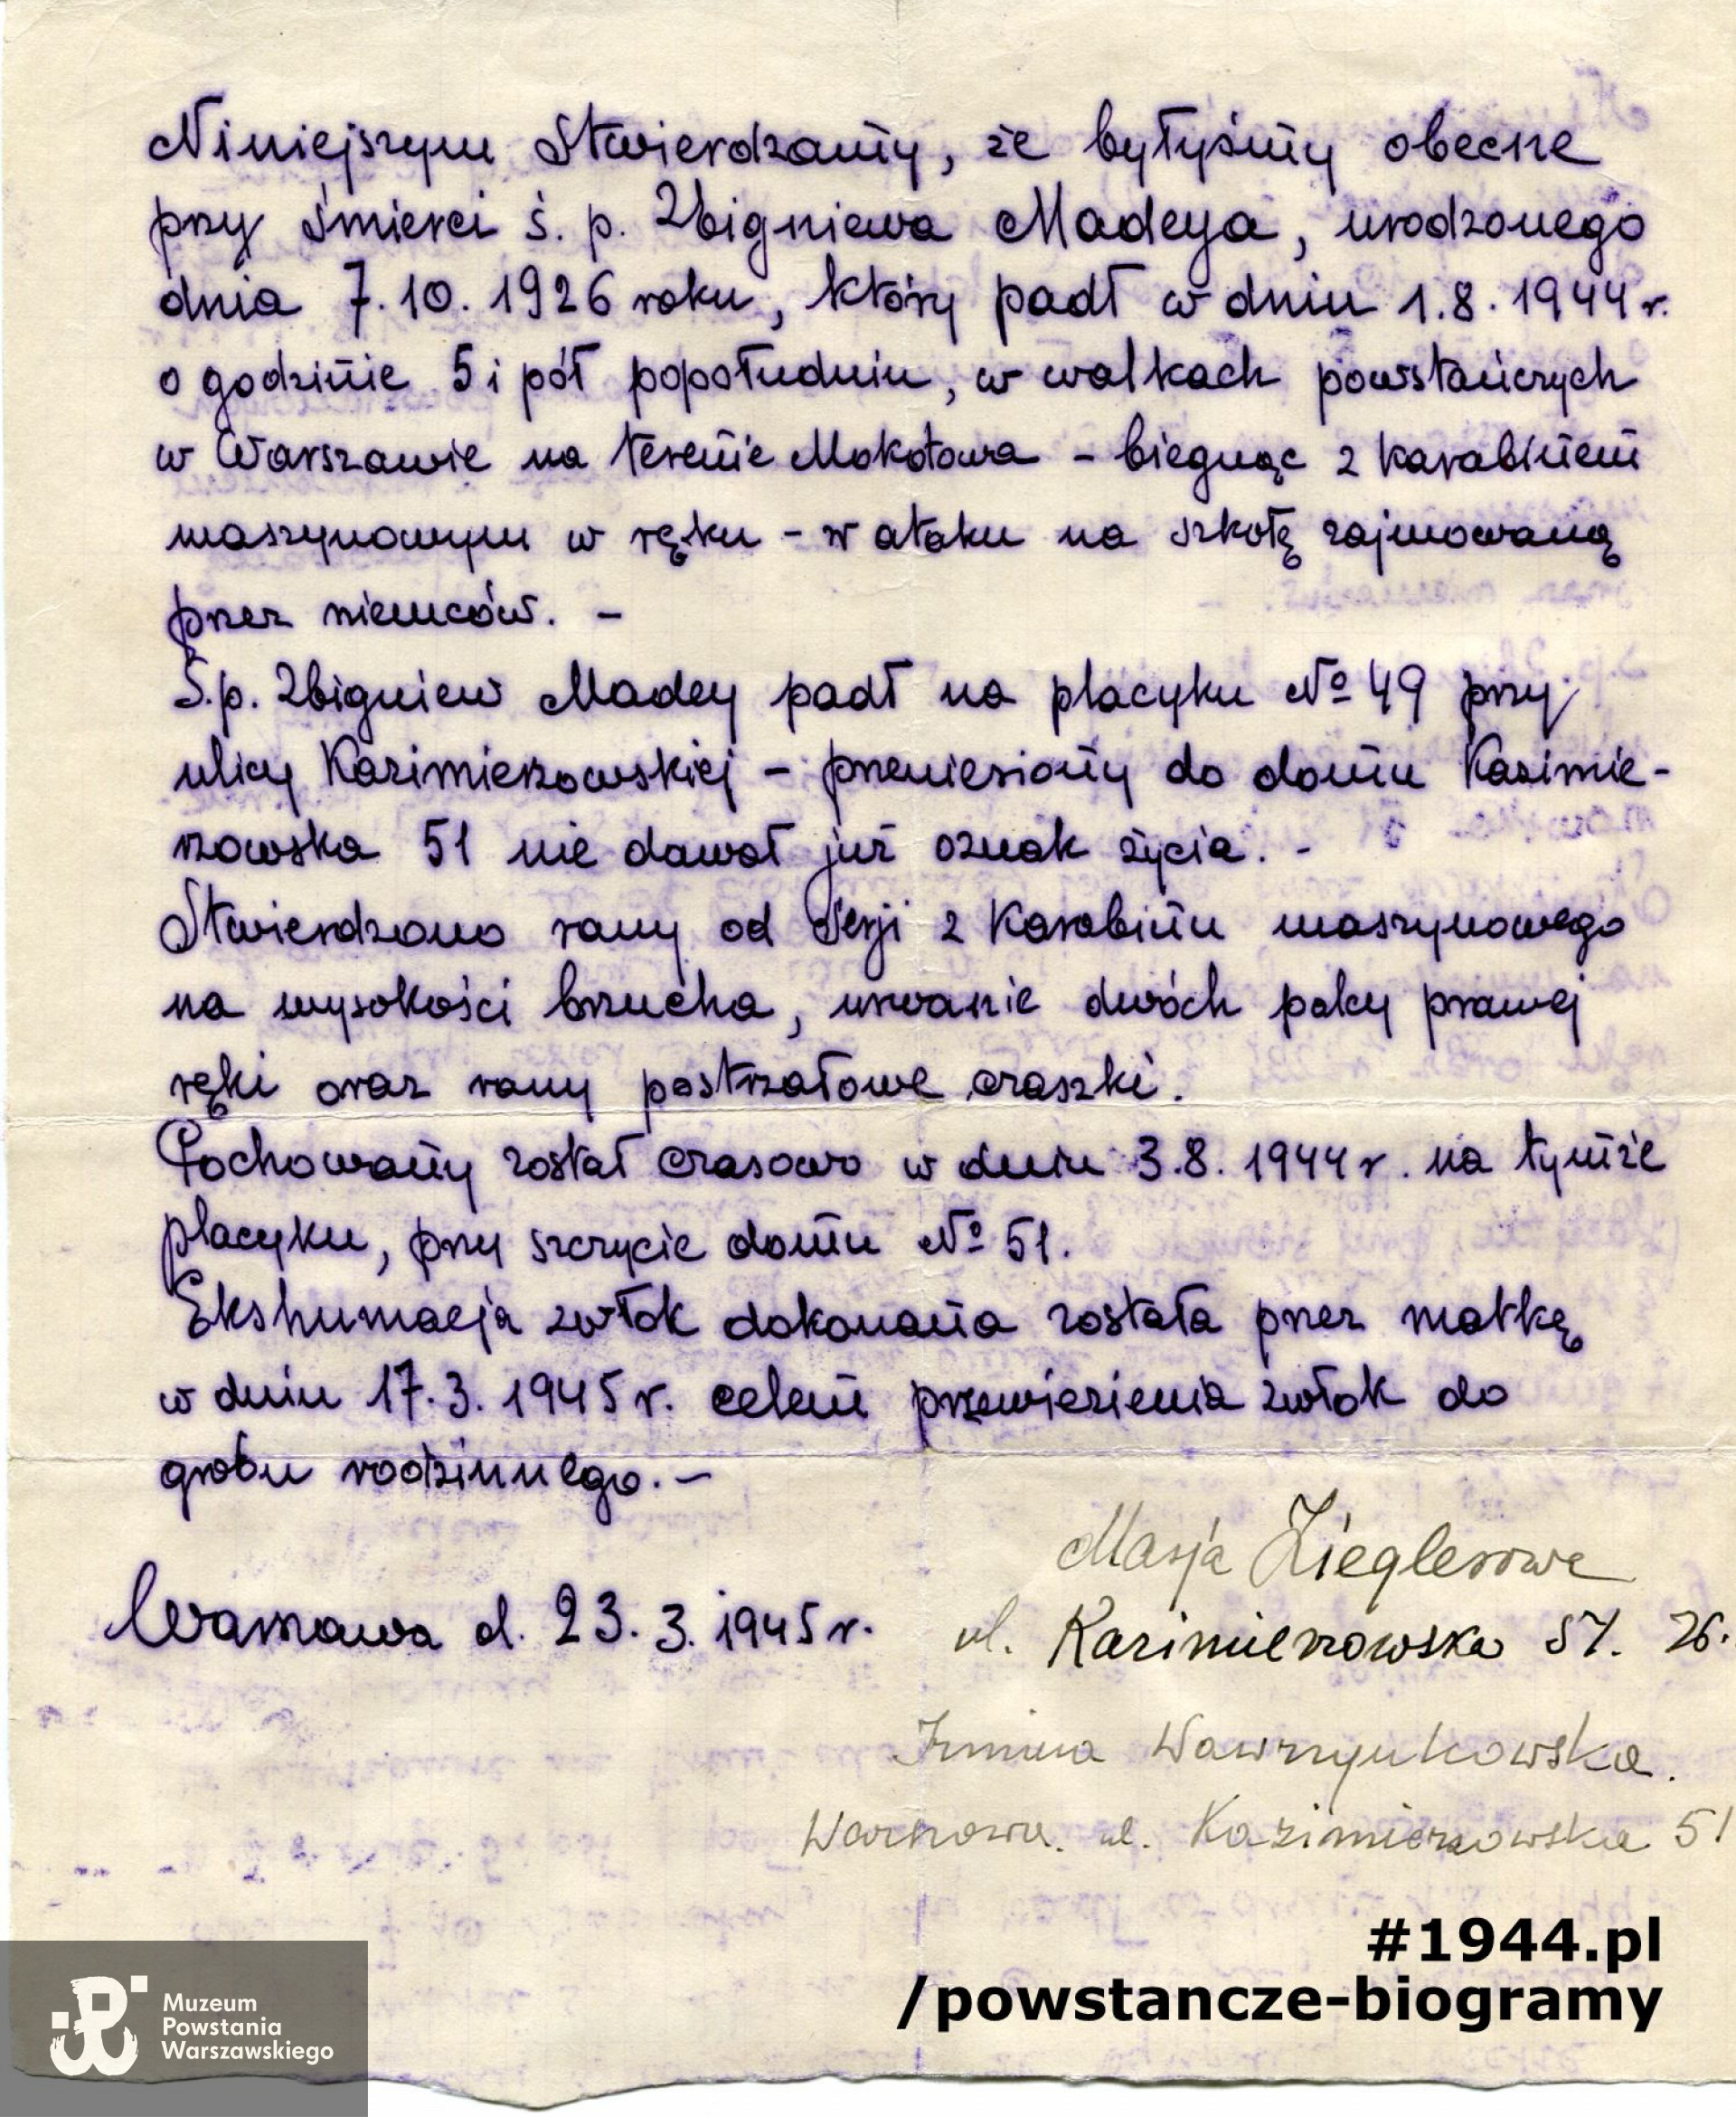 Niniejszym Stwierdzamy, że byłyśmy obecne
przy śmierci ś. p. Zbigniewa Madeya, urodzonego
dnia 7.10.1926 roku, który padł w dniu 1.8.1944 r.
o godzinie 5 i pół popołudniu, w walkach powstańczych
w Warszawie na terenie Mokotowa - biegnąc z karabinem
maszynowym w ręku - w ataku na szkołę zajmowaną
przez niemców. -
Ś.p. Zbigniew Madey padł na placyku № 49 przy
ulicy Kazimierzowskiej - przeniesiony do domu Kazimie-
rzowska 51 nie dawał już oznak życia. -
Stwierdzono rany od serji z karabinu maszynowego
na wysokości brzucha, urwanie dwóch palcy prawej
ręki oraz rany postrzałowe czaszki.
Pochowany został czasowo w dniu 3.8.1944 r. na tymże
placyku, przy szczycie domu № 51.
Ekshumacja zwłok dokonana została przez matkę
w dniu 17.3.1945 r. celem przewiezienia zwłok do
grobu rodzinnego. -
Marja Zieglerowa
Warszawa d. 23.3.1945 r.
ul. Kazimierzowska 51. 26.
Irmina Wawrzynkowska.
Warszawa. ul. Kazimierzowska 51
#1944.pl
/powstancze-biogramy
Muzeum
Powstania
Warszawskiego